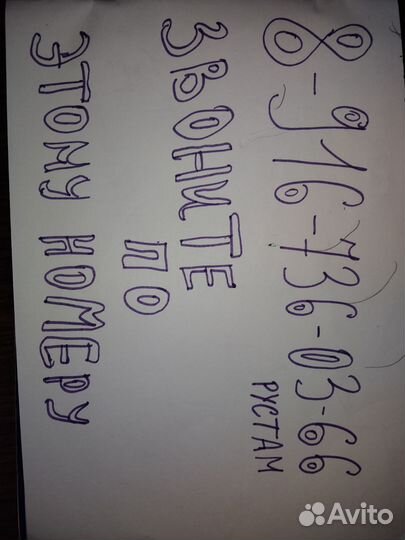 8-916-736-03-66
РУСТАМ
ЗВОНИТЕ ПО
ЭТОМУ НОМЕРУ
Avito